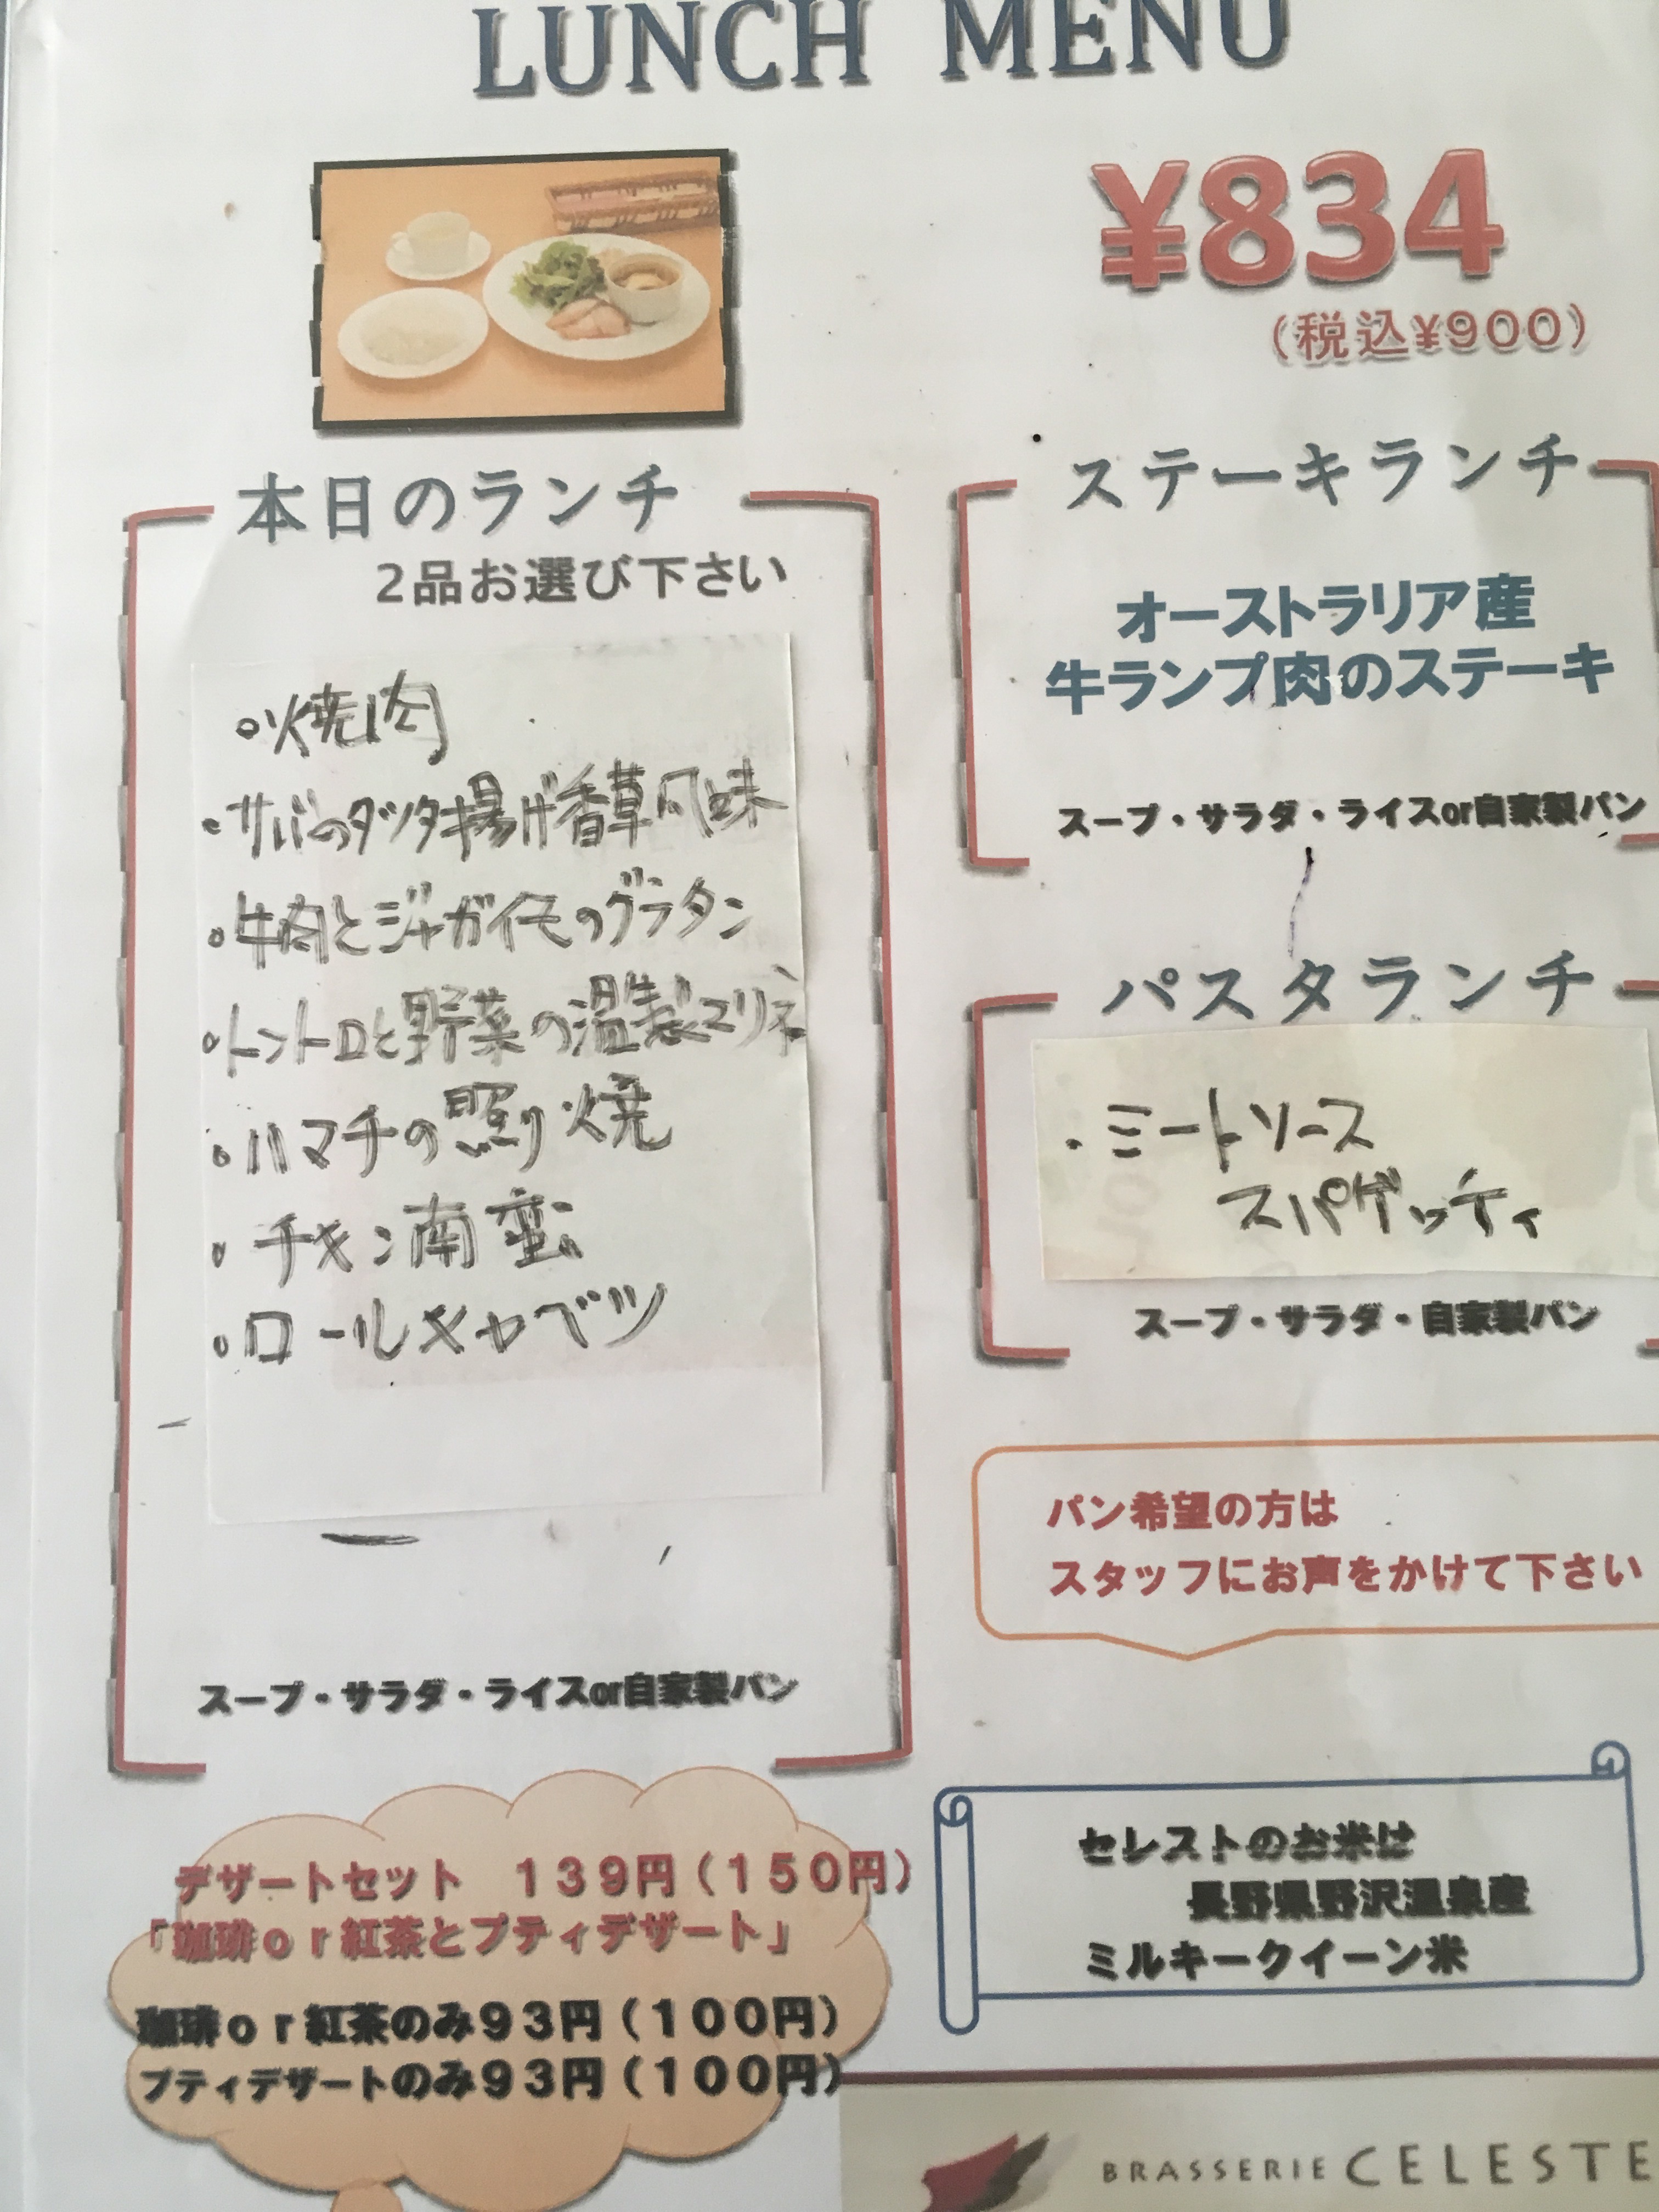 LUNCH MENU
¥834
(税込¥900)
本日のランチ
2品お選び下さい
・焼肉
・サバのタツタ揚げ香草風味
・牛肉とジャガイモのグラタン
・トントロと野菜の温製マリネ
・ハマチの照り焼
・チキン南蛮
・ロールキャベツ
スープ・サラダ・ライスor自家製パン
ステーキランチ
オーストラリア産
牛ランプ肉のステーキ
スープ・サラダ・ライスor自家製パン
パスタランチ
・ミートソース
スパゲッティ
スープ・サラダ・自家製パン
パン希望の方は
スタッフにお声をかけて下さい
デザートセット　１３９円（１５０円）
「珈琲ｏｒ紅茶とプティデザート」
珈琲ｏｒ紅茶のみ９３円（１００円）
プティデザートのみ９３円（１００円）
セレストのお米は
長野県野沢温泉産
ミルキークイーン米
BRASSERIE CELESTE